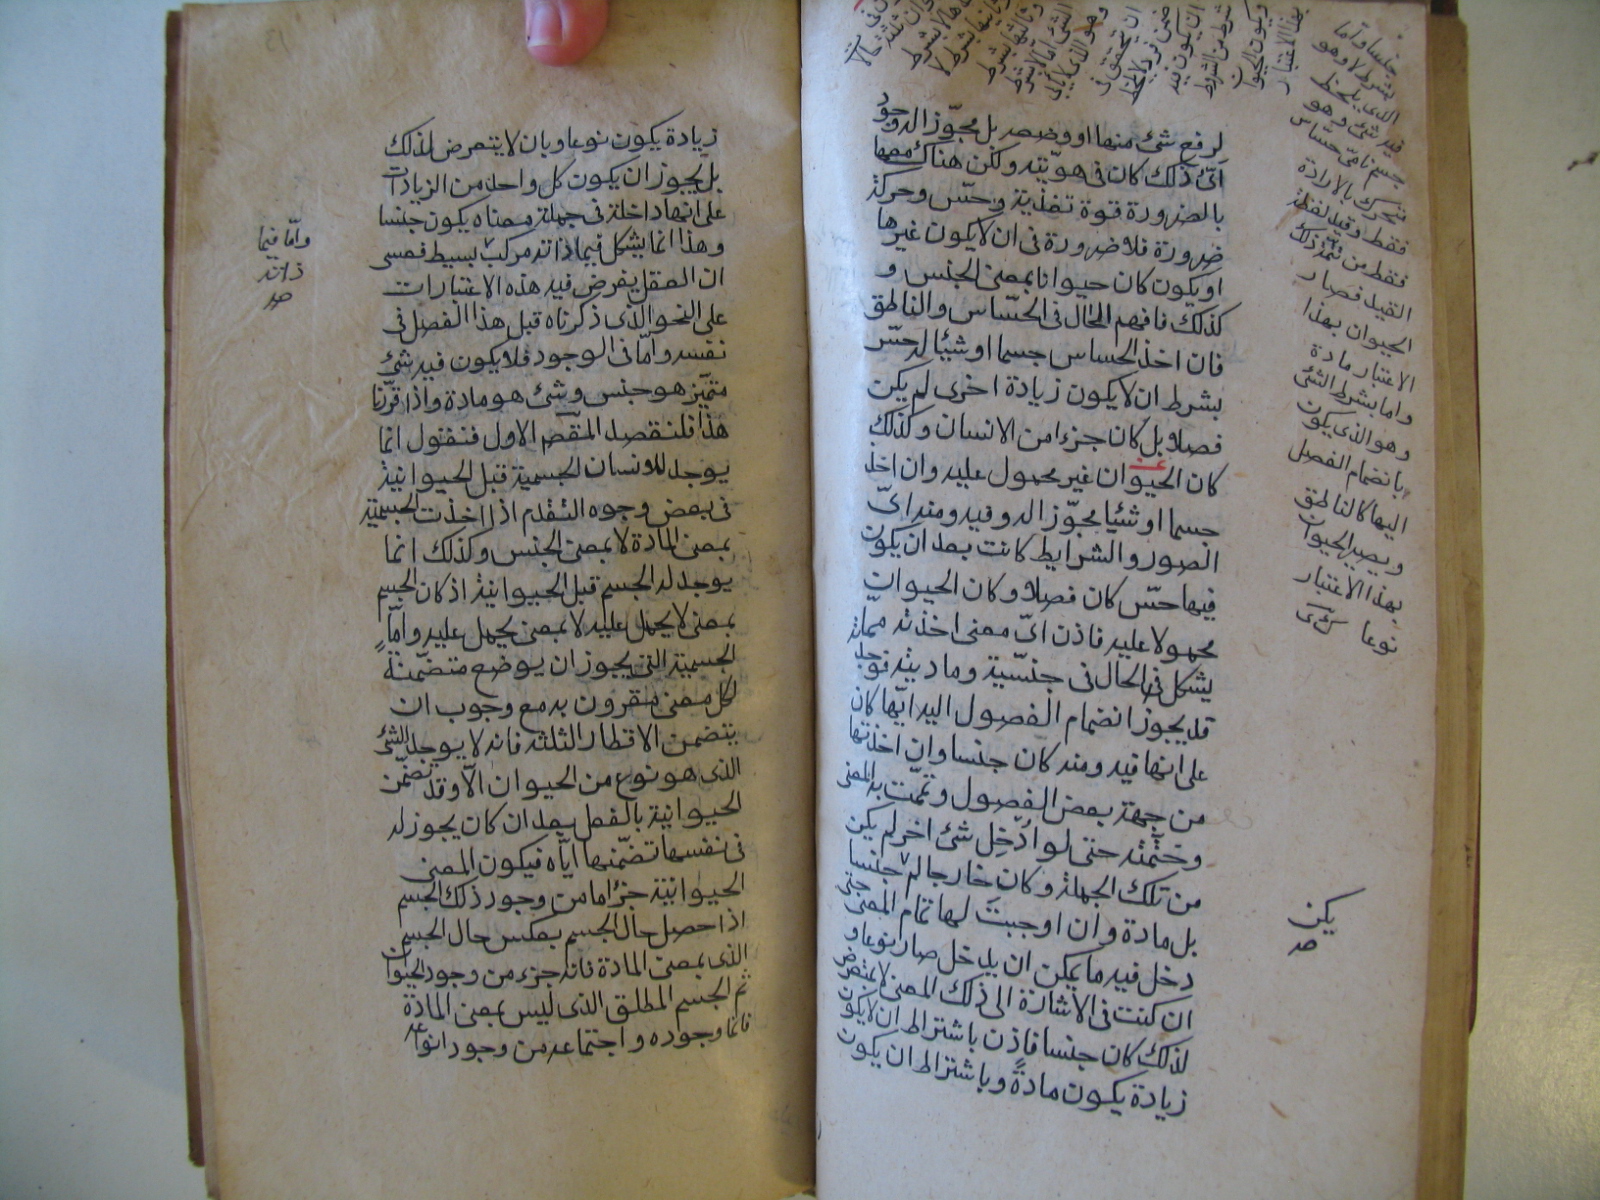 لرفع شئ منها او وضعه بل مجوّز الوجود
اىّ ذلك كان فى هويّته ولكن هناك معها
بالضرورة قوة تغذية وحسّ وحركة
ضرورة فلا ضرورة فى ان لا يكون غيرها
او يكون كان حيوانا بمعنى الجنس و
كذلك فافهم الحال فى الحسّاس والناطق
فان اخذ الحساس جسما او شيئا له حسّ
بشرط ان لا يكون زيادة اخرى لم يكن
فصلا بل كان جزءا من الانسان وكذلك
كان الحيوان غير محمول عليه وان اخذ
جسما او شيئا مجوّز اله وفيه ومنه اىّ
الصور والشرايط كانت بعد ان يكون
فيها حسّ كان فصلا وكان الحيوان
محمولا عليه فاذن اىّ معنى اخذته ممّا
يشكل فى الحال فى جنسيّة وماديته فوجد
قد يجوز انضمام الفصول اليه ايّها كان
على انها فيه ومنه كان جنسا وان اخذتها
من جهة بعض الفصول وتمّمت به المعنى
وختمته حتى لو ادّخل شئ اخر لم يكن
من تلك الجملة وكان خارجا لم جنسا
بل مادة وان اوجبت لها تمام المعنى حتى
دخل فيه ما يمكن ان يدخل صار نوعا و
ان كنت فى الاشارة الى ذلك المعنى لا يتعرض
لذلك كان جنسا فاذن باشتراط ان لا يكون
زيادة يكون مادة وباشتراط ان يكون
جنسا واما
بشرط لا وهو
الذى يلحظ
فيه شئ وهو
جسم نامى حسّاس
متحرك بالارادة
فقط وقيد لفظة
فقط من تتمّة ذلك
القيد فصار
الحيوان بهذا
الاعتبار مادة
واما بشرط الشئ
وهو الذى يكون
بانضمام الفصل
اليها كالناطق
ويصير الحيوان
بهذا الاعتبار
نوعا
يكن
صح
زيادة يكون نوعا وبان لا يتعرض لذلك
بل يجوز ان يكون كل واحد من الزيادات
على انها داخلة فى جملة معناه يكون جنسا
وهذا انما يشكل فيما ذاته مركب بسيط فعسى
ان العقل يفرض فيه هذه الاعتبارات
على النحو الذى ذكرناه قبل هذا الفصل فى
نفسه وامّا فى الوجود فلا يكون فيه شئ
متميّز هو جنس وشئ هو مادة واذا قرّرنا
هذا فلنقصد المقصد الاول فنقول انما
يوجد للانسان الجسمية قبل الحيوانية
فى بعض وجوه التقدم اذا اخذت الجسمية
بمعنى المادة لا بمعنى الجنس وكذلك انما
يوجد له الجسم قبل الحيوانية اذ كان الجسم
بمعنى لا يحمل عليه لا بمعنى يحمل عليه وامّا
الجسمية التى يجوز ان يوضع متضمّنة
لكل معنى مقرون به مع وجوب ان
يتضمن الاقطار الثلثة فانه لا يوجد الشئ
الذى هو نوع من الحيوان الّا وقد تضمّن
الحيوانية بالفعل بعد ان كان يجوز له
فى نفسها تضمّنها ايّاه فيكون المعنى
الحيوانية جزءا ما من وجود ذلك الجسم
اذا حصل حال الجسم بعكس حال الجسم
الذى بمعنى المادة فانه جزء من وجود الحيوان
ثم الجسم المطلق الذى ليس بمعنى المادّة
فانما وجوده واجتماعه من وجود انواعه
وامّا فيما
ذاته
صح